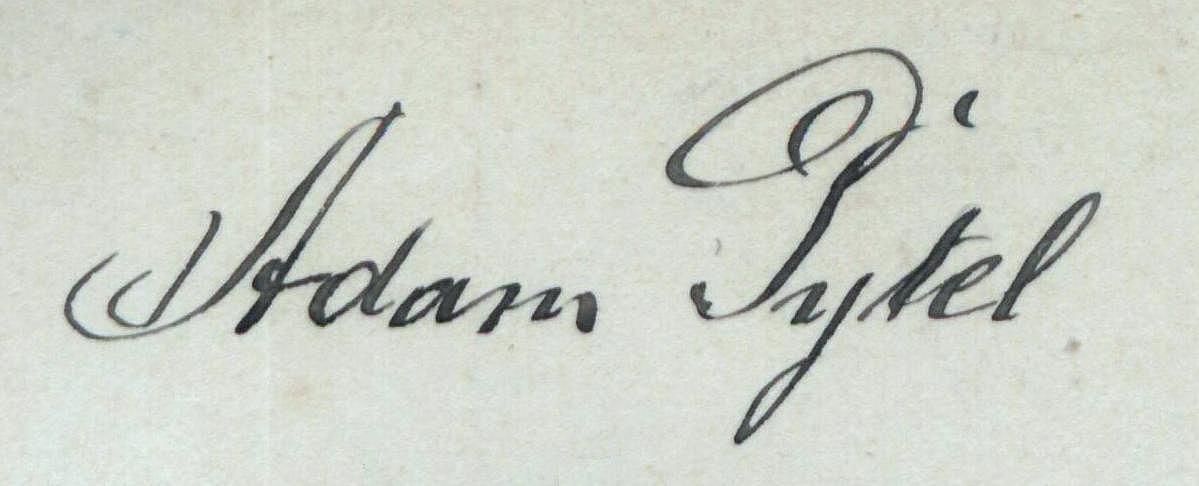 Adam Pytel